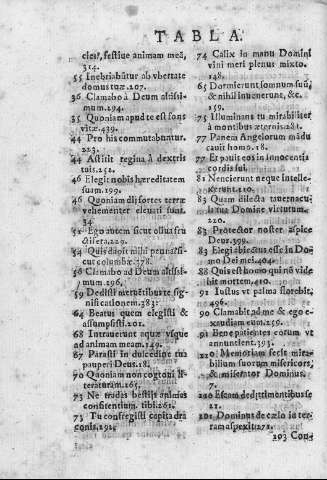 TABLA.
cles, festiue animam meã,
314.
55 Inebriabũtur ab vbertate
domus tuæ. 207.
56 Clamabo à Deum altissi-
mum. 294.
35 Quoniam apud te est fons
vitæ. 439.
44 Pro his commutabuntur.
223.
44 Astitit regina à dextris
tuis. 252.
46 Elegit nobis hæreditatem
suam. 299.
46 Quoniam dij fortes terræ
vehementer eleuati sunt.
34
51 Ego autem sicut oliua fru
ctifera. 229.
54 Quis dabit mihi pennas si-
cut columbæ. 178.
56 Clamabo ad Deum altissi-
mum. 296.
59 Dedisti metuẽtibus te sig-
nificationem. 383.
64 Beatus quem elegisti &
assumpsisti. 201.
68 Intrauerunt aquæ vsque
ad animam meam. 149.
67 Parasti in dulcedine tua
pauperi Deus. 18.
70 Quoniam non cognoui li-
teraturam. 165.
73 Ne tradas bestijs animas
confitentium. tibi. 261.
73 Tu confregisti capita dra
conis. 191.
74 Calix in manu Domini
vini meri plenus mixto.
148.
65 Dormierunt somnum suũ,
& nihil inuenerunt, &c.
159.
75 Illuminans tu mirabiliter
à montibus æternis. 281.
77 Panem Angelorum mãdu
cauit homo. 18.
77 Et pauit eos in innocentia
cordis sui.
81 Nescierunt neque intelle-
xerunt. 110.
83 Quam dilecta tabernacu-
la tua Domine virtutum.
220.
83 Protector noster aspice
Deus. 399.
83 Elegi abiectus esse in Do-
mo Dei mei. 404.
88 Quis est homo qui nõ vide
bit mortem. 410.
91 Iustus vt palma florebit.
496.
90 Clamabit ad me & ego e-
xaudiam eum. 259.
91 Bene patientes erunt vt
annuntient. 393.
110 Memoriam fecit mira-
bilium suorum misericors,
& miserator Dominus.
7.
110 Escam dedit timentibus se
21.
101 Dominus de cælo in ter-
ram aspexit. 271.
103 Con-